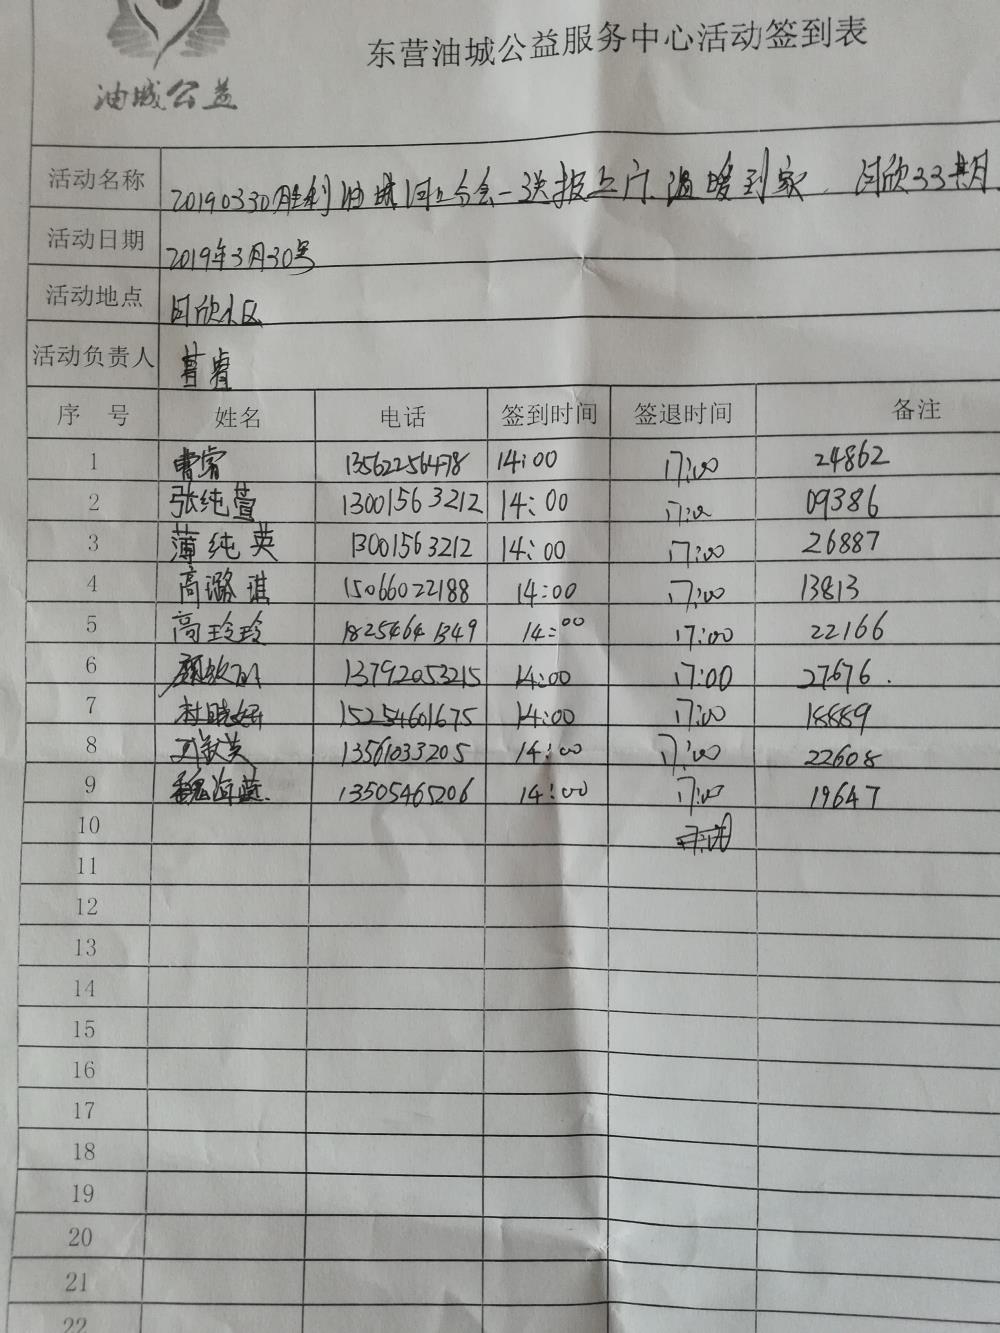 油城公益
东营油城公益服务中心活动签到表
活动名称 20190330胜利油城 送报上门.温暖到家 欣33期
活动日期 2019年3月30号
活动地点 欣小区
活动负责人 曹睿
序 号 姓名 电话 签到时间 签退时间 备注
1 曹 13562256478 14:00 17:00 24862
2 张纯萱 13001563212 14:00 17:00 09386
3 薄纯英 13001563212 14:00 17:00 26887
4 高璐琪 15066022188 14:00 17:00 13813
5 高玲玲 18254641349 14:00 17:00 22166
6 13792053215 14:00 17:00 27676.
7 杜晓妍 15254601675 14:00 17:00 18889
8 英 13561033205 14:00 17:00 22608
9 魏海燕 13505465206 14:00 17:00 19647
10
11
12
13
14
15
16
17
18
19
20
21
22